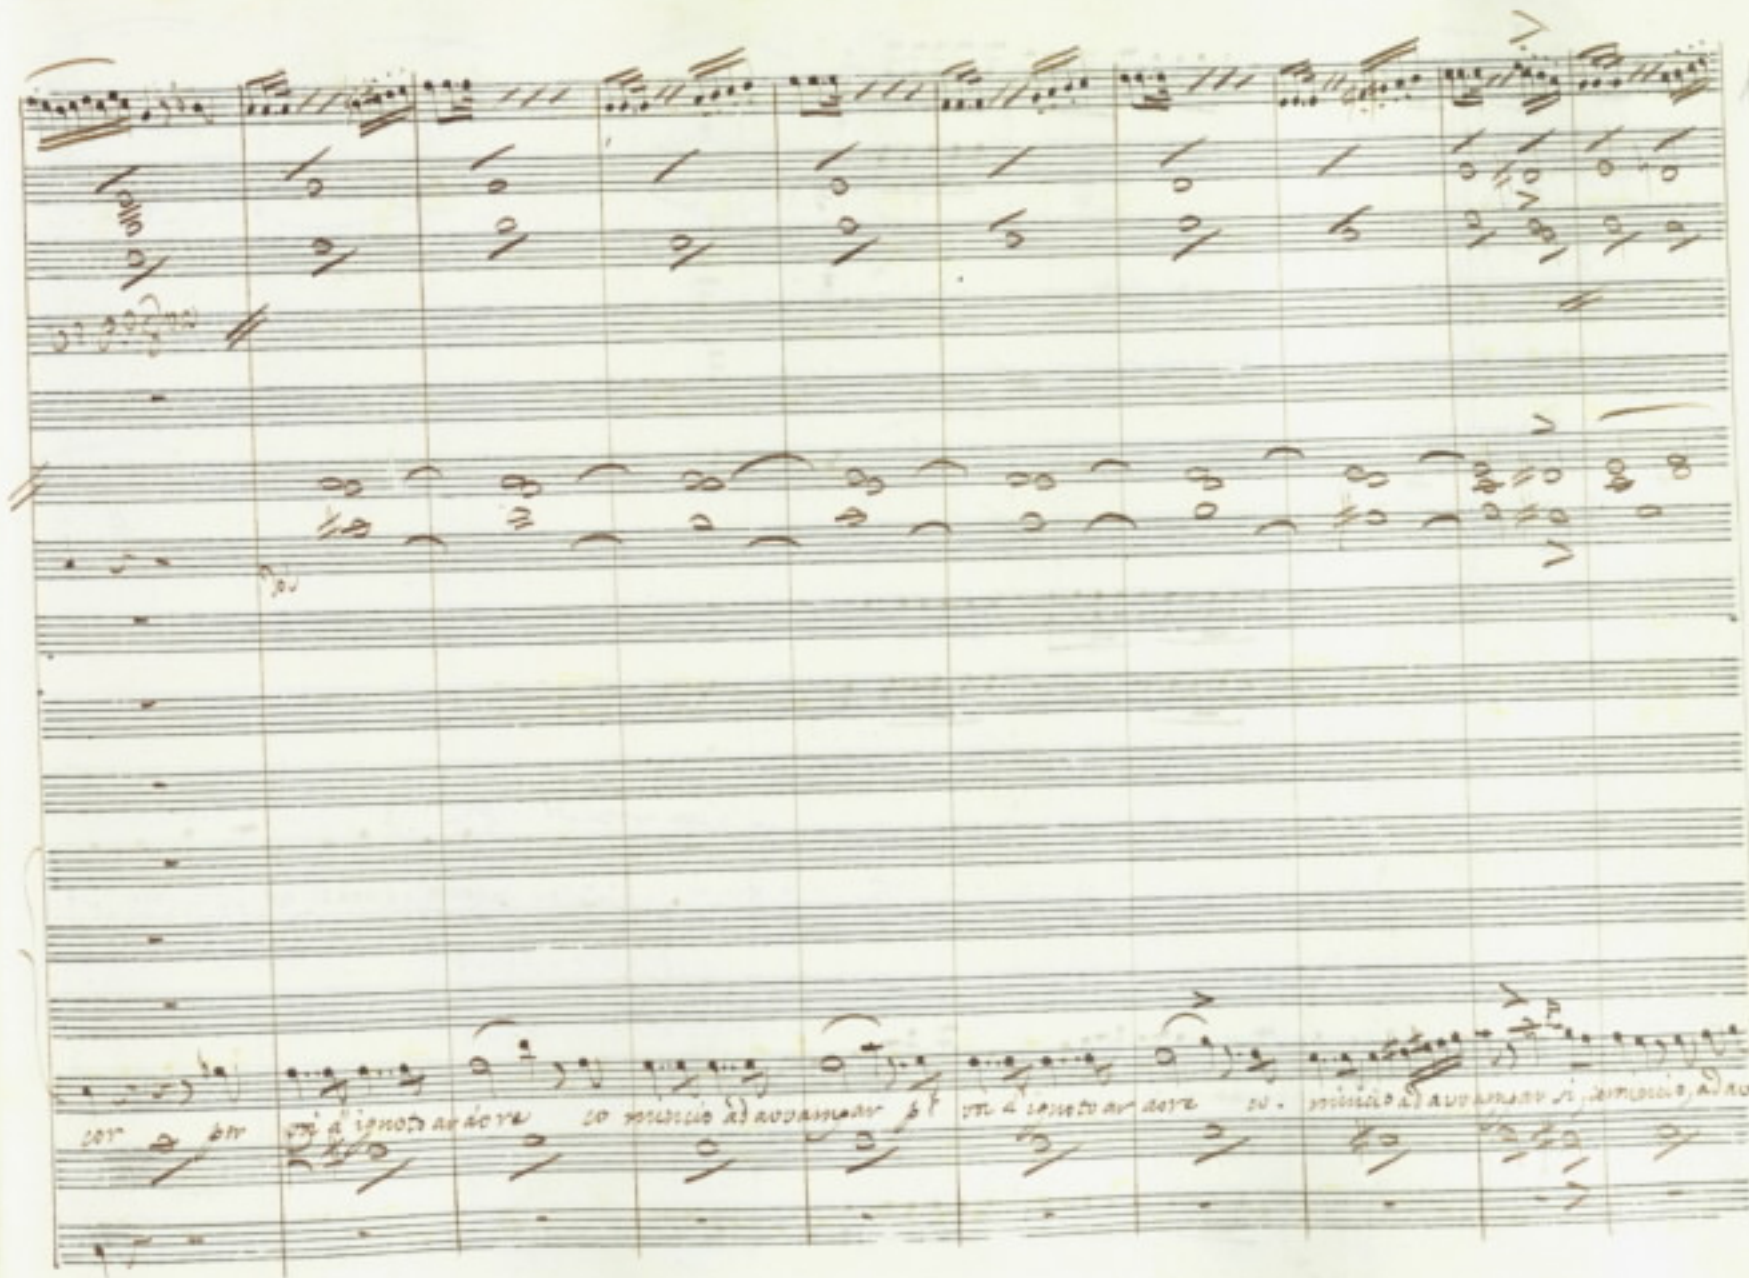 cor per un ignoto ardore co mincio ad avvampar un ignoto ar dore co. mincio ad avvampar si, comincio, ad av